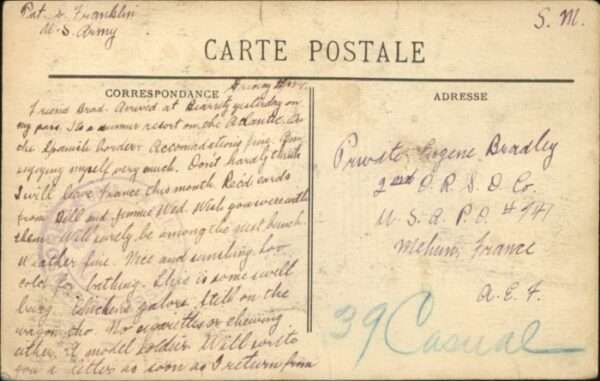 Pat. L. Franklin
U.S. Army
S. M.
CARTE POSTALE
CORRESPONDANCE
ADRESSE
Friday
Friend Brad- Arrived at Biarritz yesterday on
my pass. Its a summer resort on the Atlantic. On
the Spanish border. Accomodations fine. Am
enjoying myself very much. Don't hardly think
I will leave France this month. Rec'd cards
from Bill and Jimmie Wed. Wish you were with
them. Will surely be among the next bunch.
Weather fine. Nice and sunshiny. Too
cold for bathing. This is some swell
burg. Chickens galore. Still on the
wagon tho. No cigarettes or chewing
either. A model soldier. Will write
you a letter as soon as I return from
Private Eugene Bradley
2nd O.R.S.D. Co.
U.S.A.P.O. #741
Mehun, France
A.E.F.
39 Casual